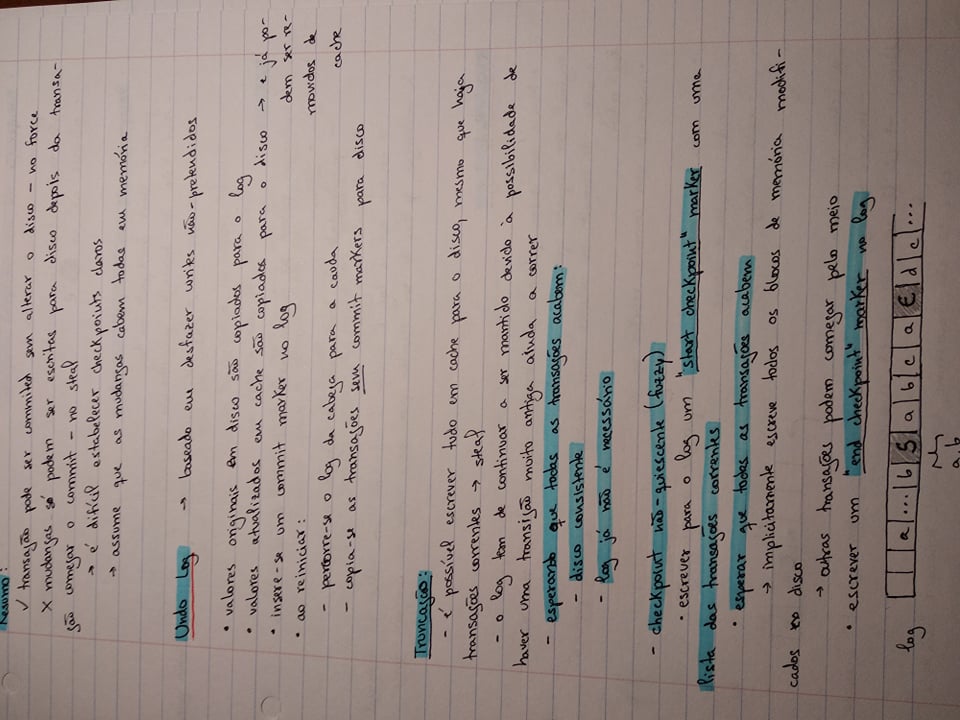 Resumo:
✓ transação pode ser commited sem alterar o disco - no force
✗ mudanças só podem ser escritas para disco depois da transa-
ção começar o commit - no steal
→ é difícil estabelecer checkpoints claros
→ assume que as mudanças cabem todas em memória
Undo Log → baseado em desfazer writes não-pretendidos
• valores originais em disco são copiados para o log
• valores atualizados em cache são copiados para o disco → e já po-
dem ser re-
movidos de
cache
• insere-se um commit marker no log
• ao reiniciar:
- percorre-se o log da cabeça para a cauda
- copia-se as transações sem commit markers para disco
Truncação:
- é possível escrever tudo em cache para o disco, mesmo que haja
transações correntes → steal
- o log tem de continuar a ser mantido devido à possibilidade de
haver uma transição muito antiga ainda a correr
- esperando que todas as transações acabem:
- disco consistente
- log já não é necessário
- checkpoint não-quiescente (fuzzy)
• escrever para o log um "start checkpoint" marker com uma
lista das transações correntes
• esperar que todas as transações acabem
→ implicitamente escreve todos os blocos de memória modifi-
cados no disco
→ outras transações podem começar pelo meio
• escrever um "end checkpoint" marker no log
log a ... b S a b c a E d c ...
a, b